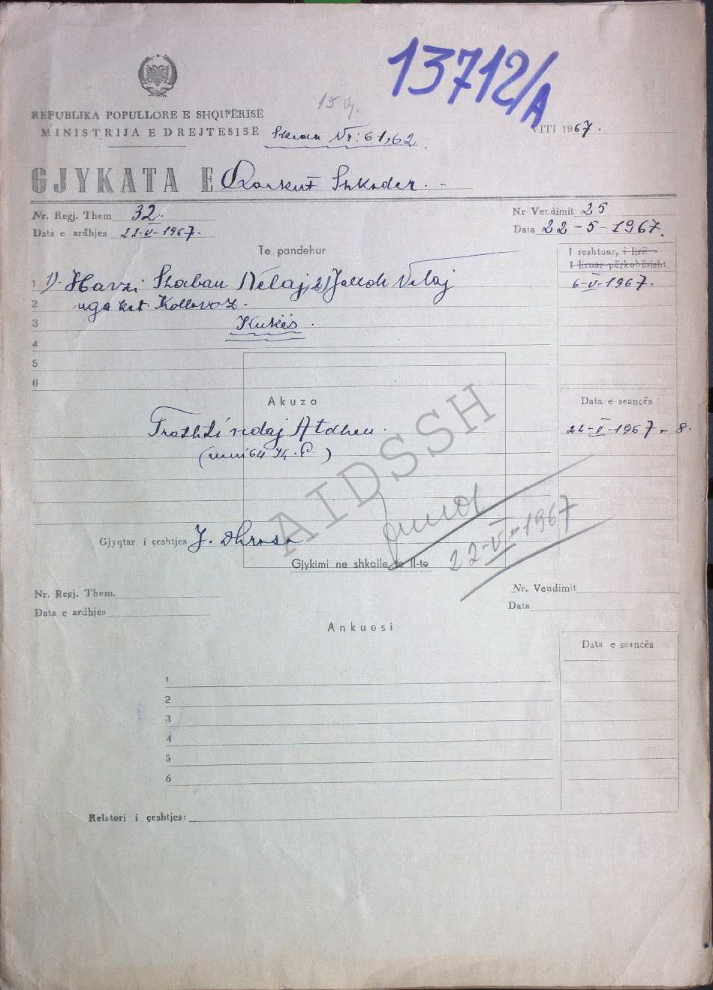 13712/A
REPUBLIKA POPULLORE E SHQIPËRISË
MINISTRIJA E DREJTESISË
Nr: 61, 62
VITI 1967.
GJYKATA E Qarkut Shkoder.
Nr. Regj. Them 32.
Nr Vendimit 25
Data e ardhjes 22-V-1967.
Data 22-5-1967.
Te pandehur
I reshtuar, i lirë
I liruar përkohërisht
1 1) Havzi Shaban Nelaj, 2) Jakob Velaj
6-V-1967.
2 nga kat. Kollovoz.
3 Kukës.
4
5
6
Akuza
Data e seancës
Trathti ndaj Atdheu.
22-V-1967 - 8.
(neni 64 K.P)
AIDSSH
Gjyqtar i çeshtjes J. Dhroso
22-VI-1967
Gjykimi ne shkalle te II-te
Nr. Regj. Them.
Nr. Vendimit
Data e ardhjes
Data
Ankuesi
Data e seancës
1
2
3
4
5
6
Relatori i çeshtjes: